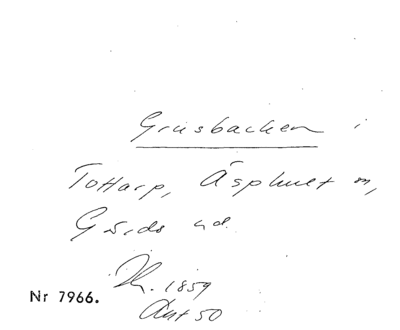 Grusbacken i
Tottarp, Äsphult sn,
Gärds hd.
Nr 7966.
1859
Akt 50